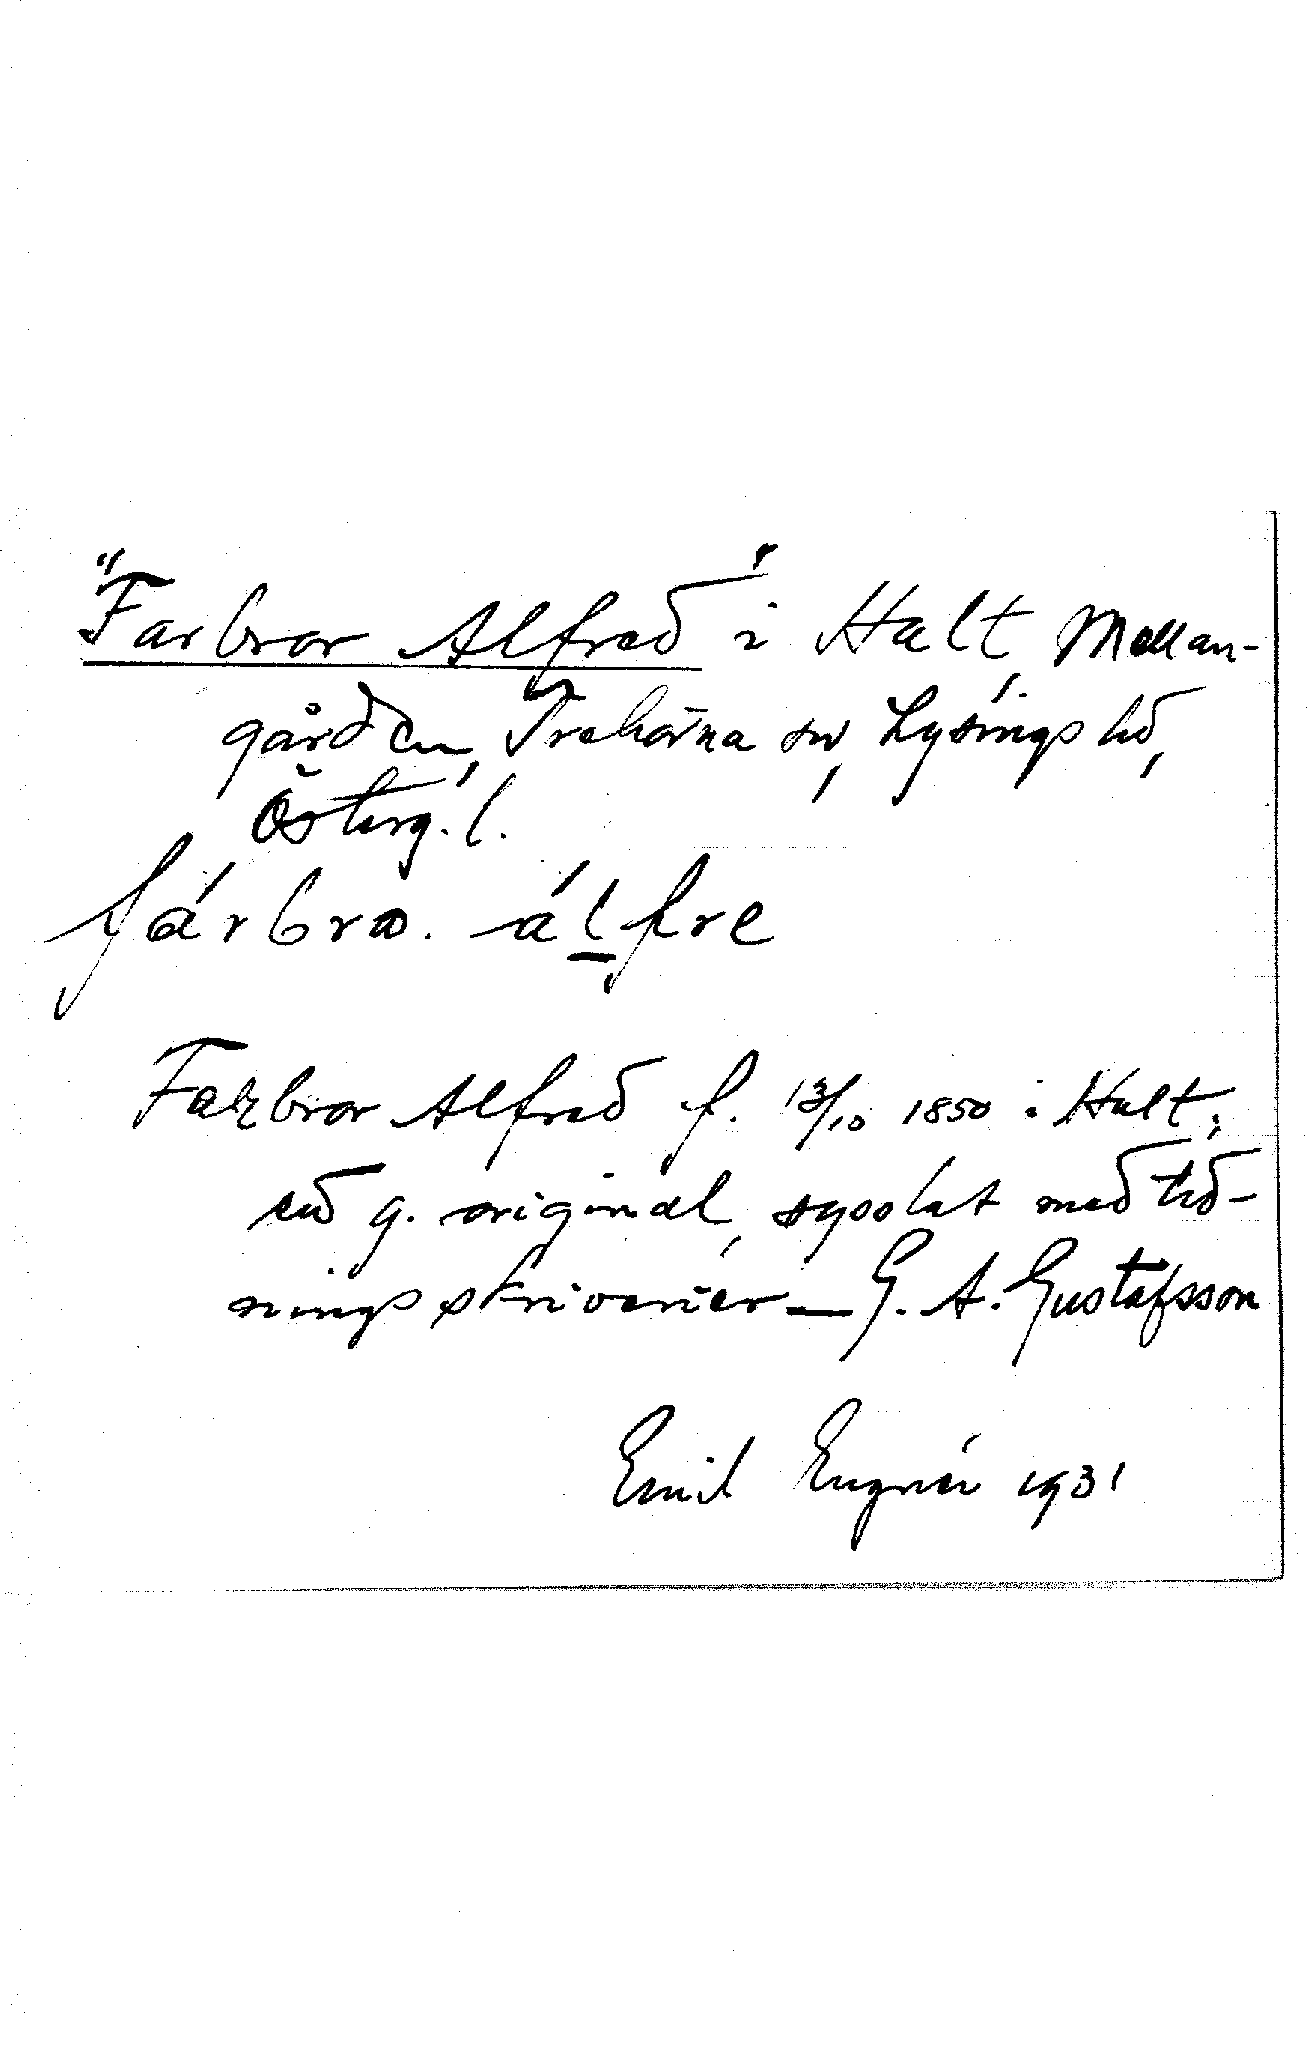 "Farbror Alfred" i Halt, Mellan-
gården, Trehörna sn, Lysings hd,
Österg.l.
fárbro. álfre
Farbror Alfred f. 13/10 1850 i Halt;
g. original, sysslat med tid-
ningsskriverier — G. A. Gustafsson
Emil 1931